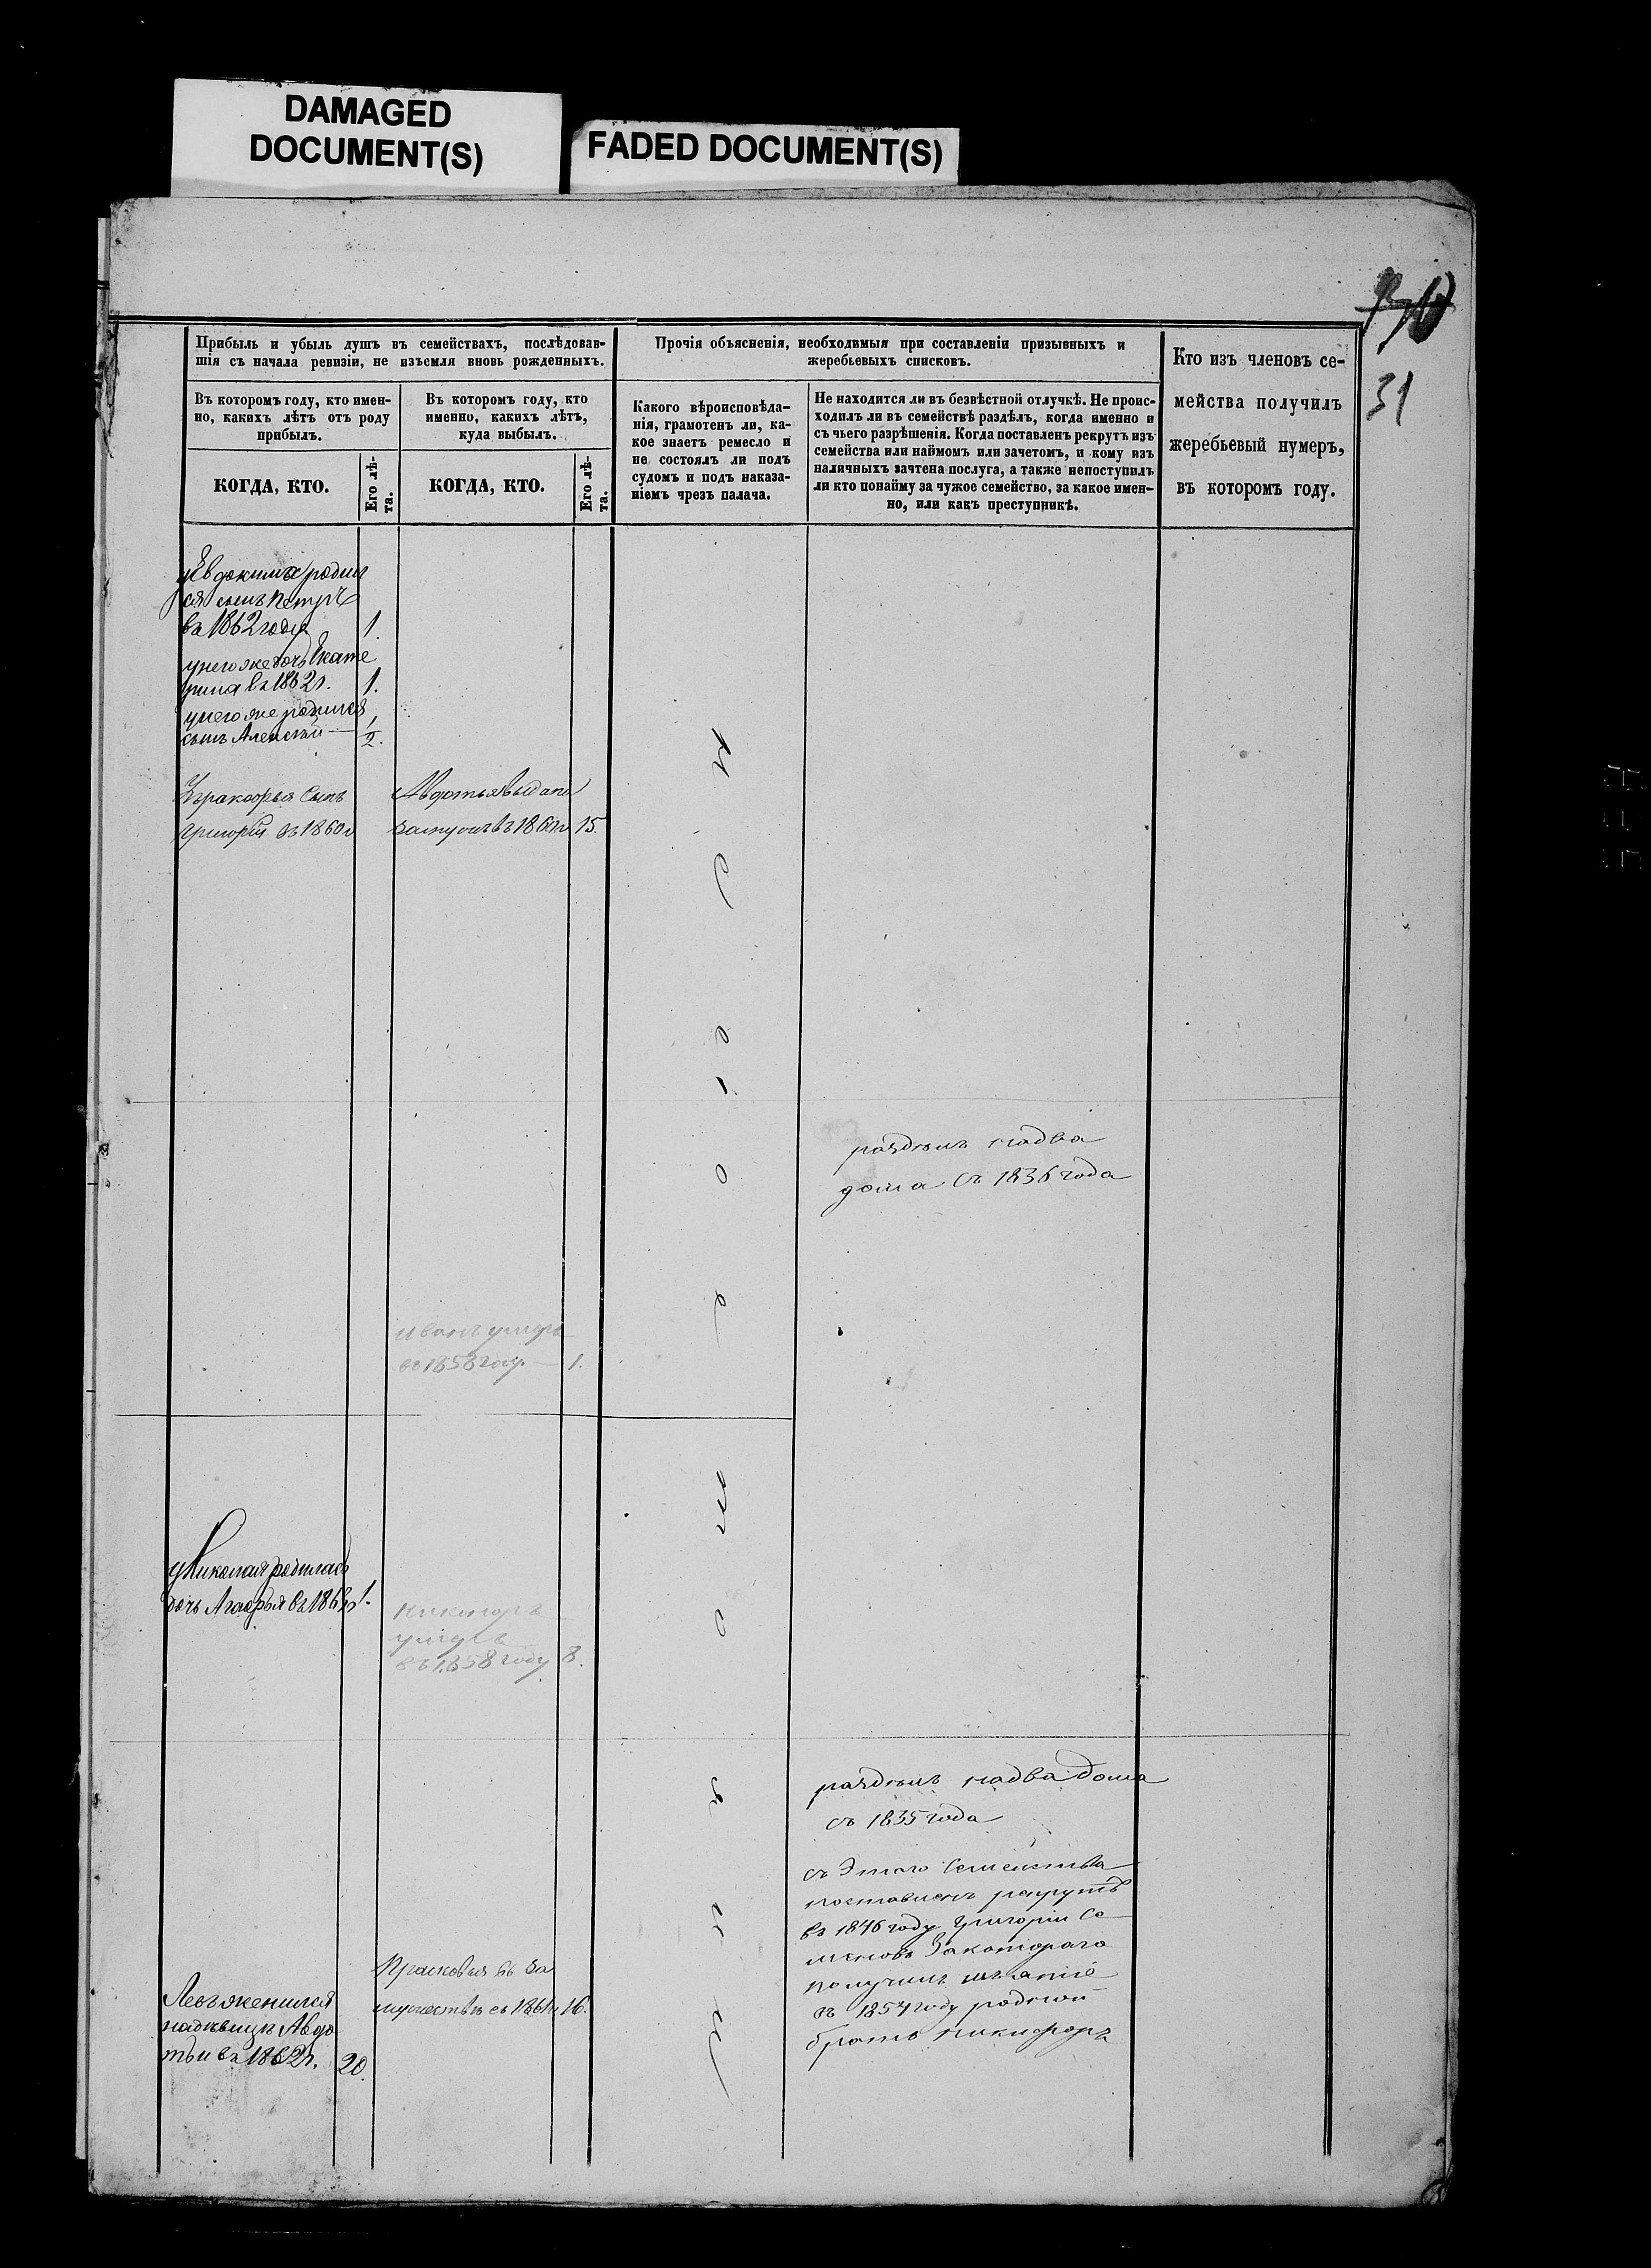 DAMAGED
DOCUMENT(S)
FADED DOCUMENT(S)
31
Прибыль и убыль душъ въ семействахъ, послѣдовав-
шія съ начала ревизіи, не изъемля вновь рожденныхъ.
Прочія объясненія, необходимыя при составленіи призывныхъ и
жеребьевыхъ списковъ.
Кто изъ членовъ се-
мейства получилъ
жеребьевый нумеръ,
въ которомъ году.
Въ которомъ году, кто имен-
но, какихъ лѣтъ отъ роду
прибылъ.
Въ которомъ году, кто
именно, какихъ лѣтъ,
куда выбылъ.
Какого вѣроисповѣда-
нія, грамотенъ ли, ка-
кое знаетъ ремесло и
не состоялъ ли подъ
судомъ и подъ наказа-
ніемъ чрезъ палача.
Не находится ли въ безвѣстной отлучкѣ. Не проис-
ходилъ ли въ семействѣ раздѣлъ, когда именно и
съ чьего разрѣшенія. Когда поставленъ рекрутъ изъ
семейства или наймомъ или зачетомъ, и кому изъ
наличныхъ зачтена послуга, а также непоступилъ
ли кто понайму за чужое семейство, за какое имен-
но, или какъ преступникъ.
КОГДА, КТО.
Его лѣ-
та.
КОГДА, КТО.
Его лѣ-
та.
у Евдокима родил
ся сынъ Петръ
въ 1862 году 1.
у него же дочь Екате
рина въ 1862 г. 1.
у него же родился
сынъ Алексѣй — 1/2.
сынъ
Григорій въ 1860 г
Авдотья выдана
замужъ въ 1860 г 15.
раздѣлъ на два
дома съ 1836 года
Иванъ умеръ
въ 1858 году. — 1.
у Николая родилась
дочь Агафья въ 1
Никоноръ
умеръ
въ 1858 году 8.
раздѣлъ на два дома
съ 1835 года
съ Этаго Семейства
поставленъ рекрутъ
въ 1846 году Григорій Се
меновъ За котораго
получилъ
въ 1854 году родной
братъ Никифоръ
Прасковья въ за
мужествѣ съ 1861 г 16.
женился
на дѣвицѣ Авдо
тьи въ 1862 г. 20.